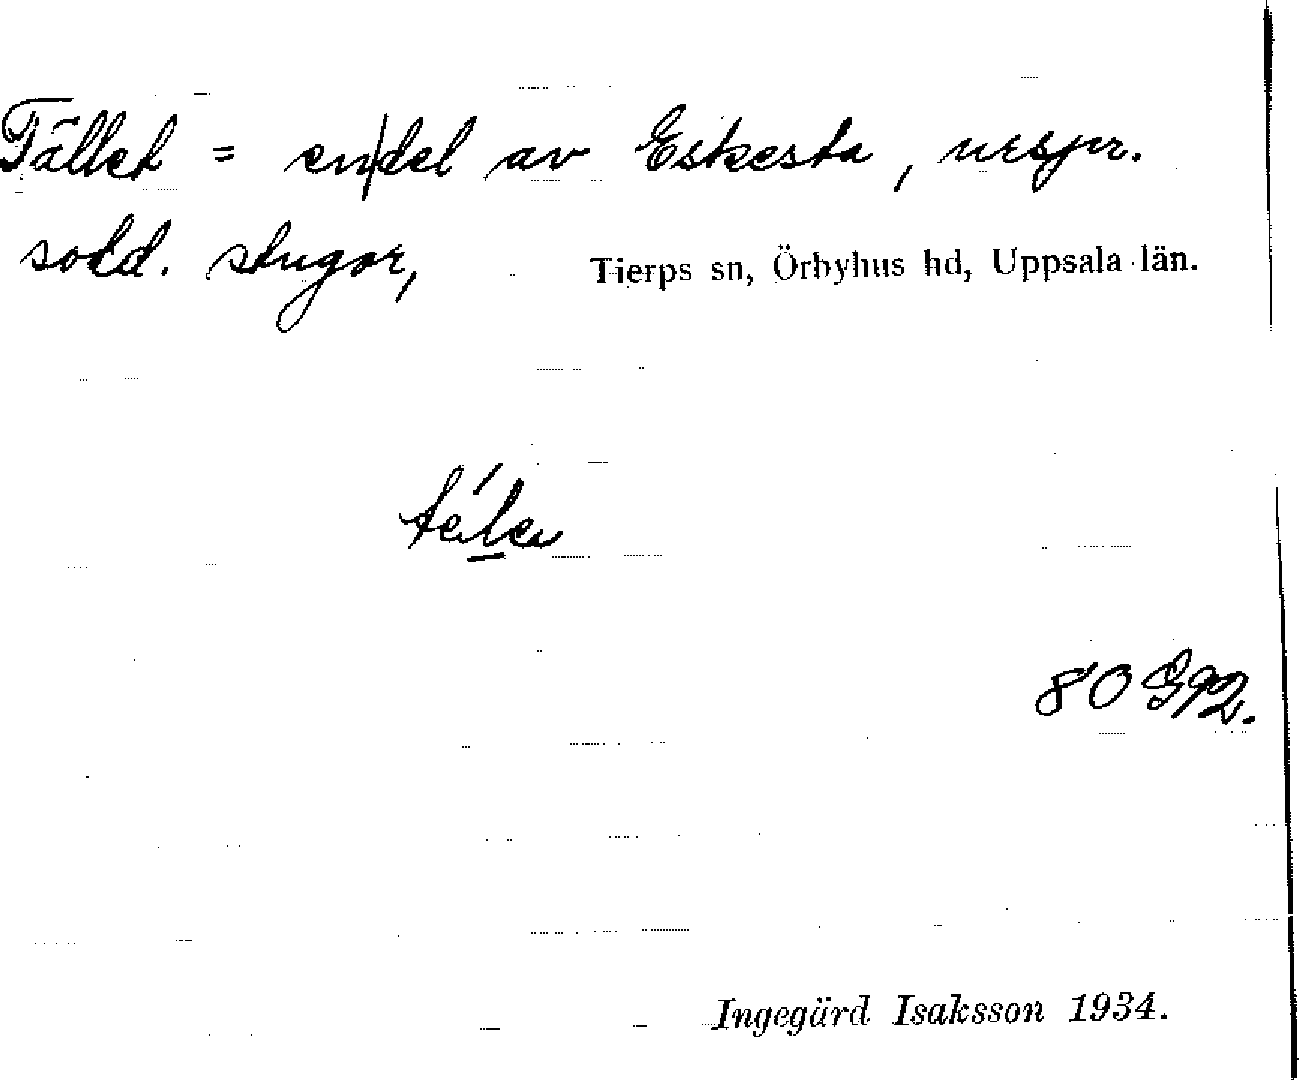 Tället = en|del av Eskesta, urspr.
sold. stugor,
Tierps sn, Örbyhus hd, Uppsala län.
80 G92.
Ingegärd Isaksson 1934.